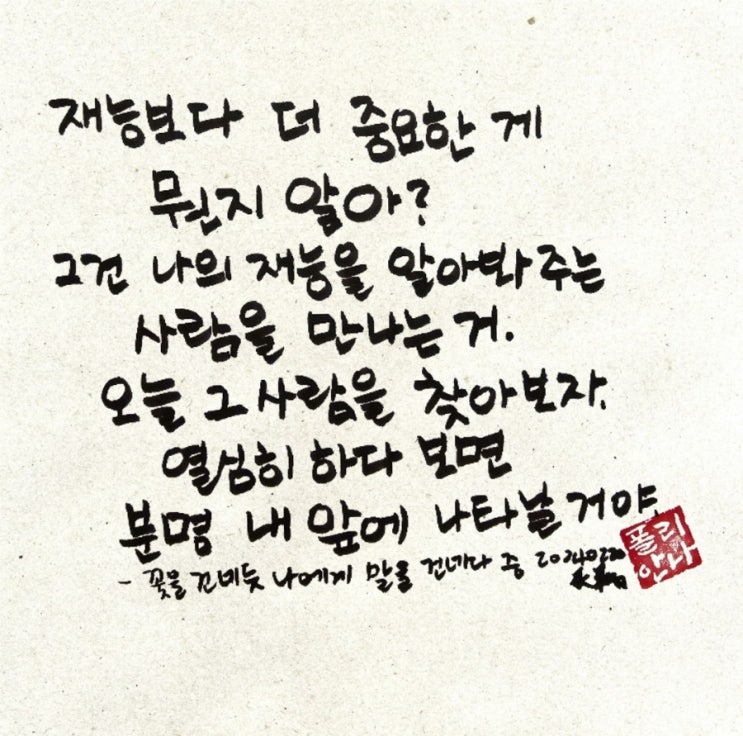 재능보다 더 중요한 게
뭔지 알아?
그건 나의 재능을 알아봐 주는
사람을 만나는 거.
오늘 그 사람을 찾아보자.
열심히 하다 보면
분명 내 앞에 나타날 거야.
- 꽃물 건네듯 나에게 말을 건네다 중 20240220
폴리
안나